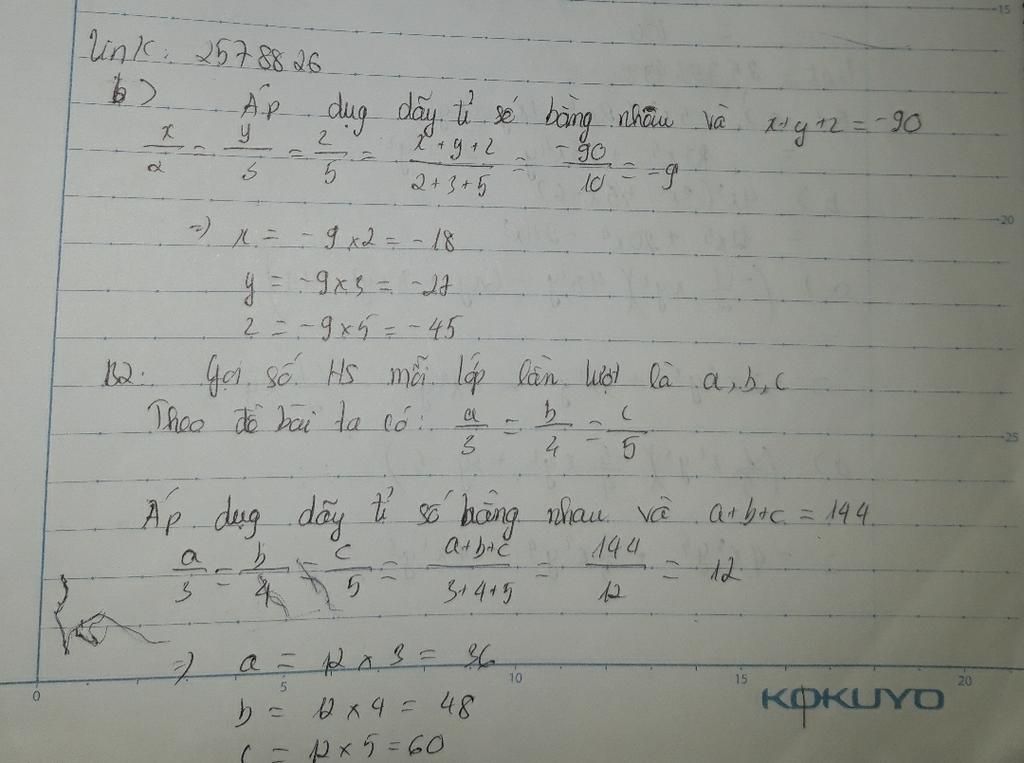 15
link: 2578826
b) Áp dụg dãy tỉ số bằng nhau và x+y+z = -90
x/2 = y/3 = z/5 = x+y+z/2+3+5 = -90/10 = -9
20
=) x = -9 x 2 = -18
y = -9 x 3 = -27
z = -9 x 5 = -45
B2: Gọi số HS mỗi lớp lần lượt là a, b, c
Theo đề bài ta có: a/3 = b/4 = c/5
25
Áp dụg dãy tỉ số bằng nhau và a+b+c = 144
a/3 = b/4 = c/5 = a+b+c/3+4+5 = 144/12 = 12
=) a = 12 x 3 = 36
0 5 10 15 20
KOKUYO
b = 12 x 4 = 48
c = 12 x 5 = 60